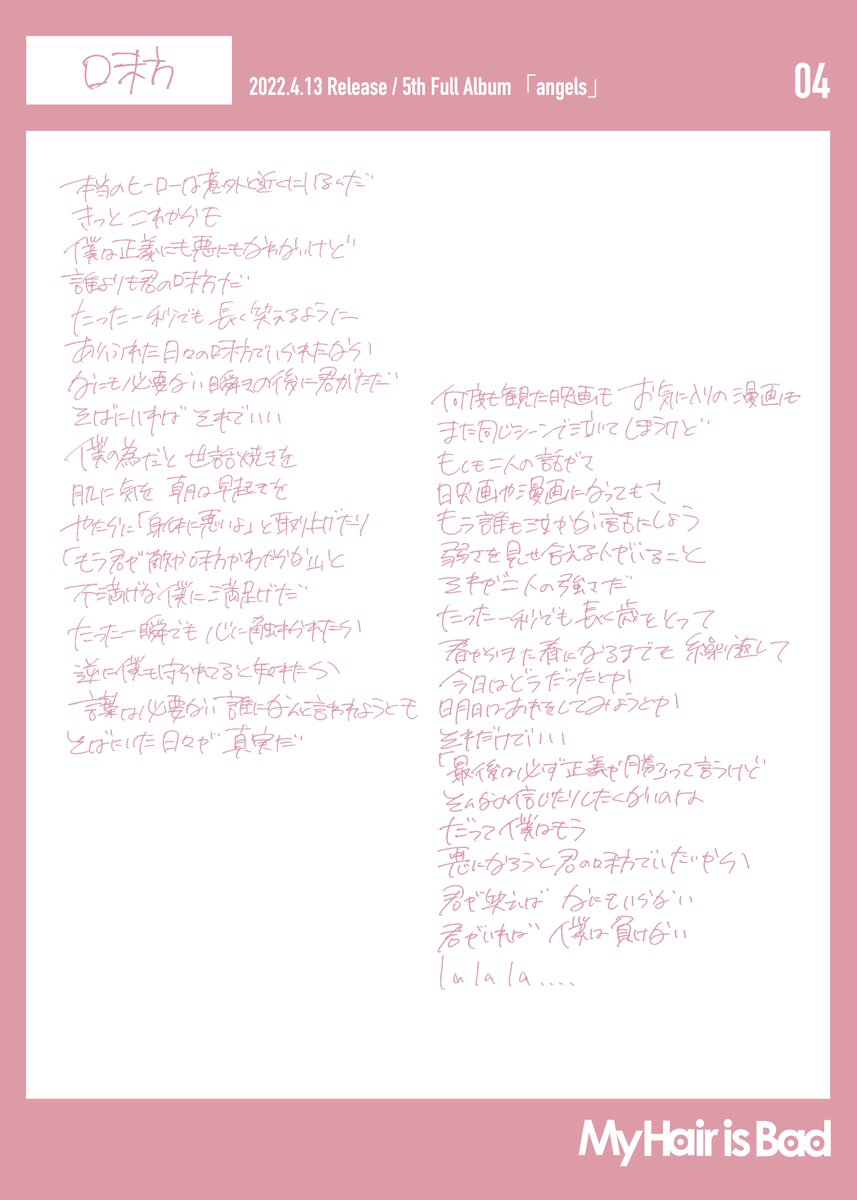 味方
2022.4.13 Release / 5th Full Album 「angels」
04
本当のヒーローは意外と近くにいるんだ
きっと これからも
僕は正義にも悪にもなれないけど
誰よりも君の味方だ
たった一秒でも 長く笑えるように
ありふれた日々の味方でいられたなら
なにも必要ない 瞬きの後に君がただ
そばにいれば それでいい
僕の為だと 世話焼きを
肌に気を 朝は早起きを
やたらに「身体に悪いよ」と取り上げたり
「もう君が敵か味方かわからない」と
不満げな僕に満足げだ
たった一瞬でも 心に触れられたら
逆に僕も守られてると知れたら
言葉は必要ない 誰になんと言われようとも
そばにいた日々が 真実だ
何度も観た映画も お気に入りの漫画も
また同じシーンで泣いてしまうけど
もしも二人の話がさ
映画や漫画になってもさ
もう誰も泣かない話にしよう
弱さを見せ合える人がいること
それが二人の強さだ
たった一秒でも 長く歳をとって
春からまた春になるまでを 繰り返して
今日はどうだったとか
明日はあれをしてみようとか
それだけでいい
「最後は必ず正義が勝つ」って言うけど
そんなの信じたりしたくないのは
だって僕はもう
悪になろうと君の味方でいたいから
君が笑えば なにもいらない
君がいれば 僕は負けない
la la la....
My Hair is Bad